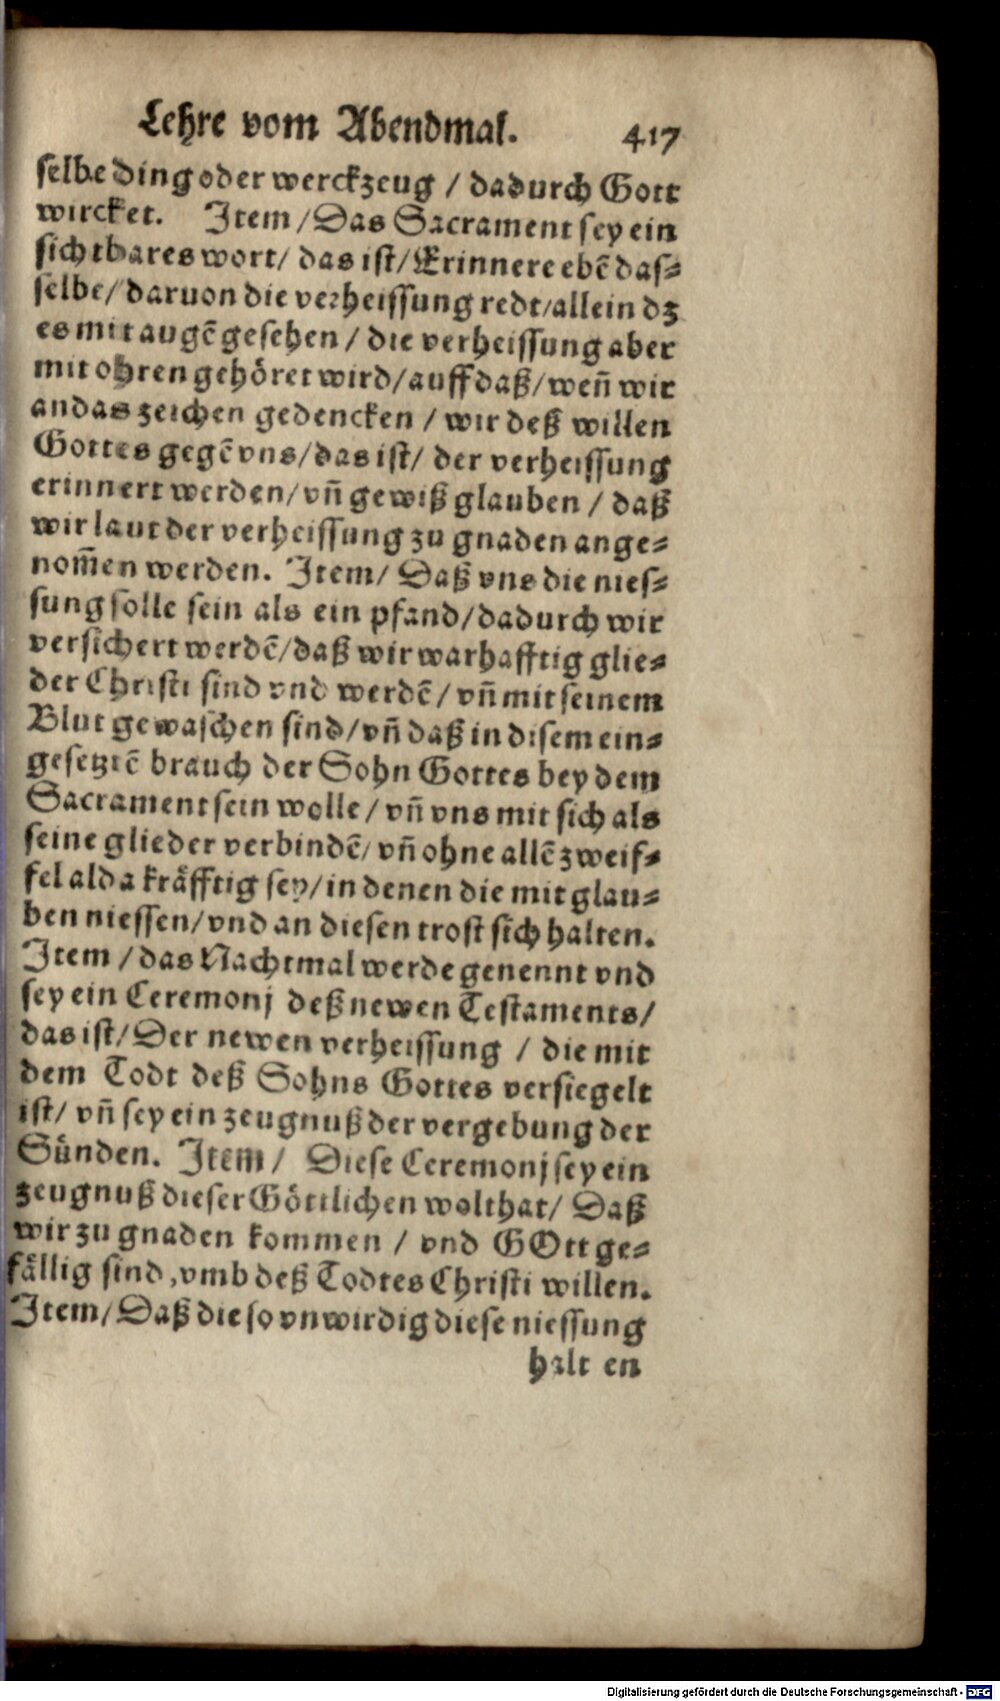 Lehre vom Abendmal. 417
selbe ding oder werckzeug / dadurch Gott
wircket. Item / Das Sacrament sey ein
sichtbares wort / das ist / Erinnere ebẽ das⸗
selbe / daruon die verheissung redt / allein dz
es mit augẽ gesehen / die verheissung aber
mit ohren gehöret wird / auff daß / weñ wir
an das zeichen gedencken / wir deß willen
Gottes gegẽ vns / das ist / der verheissung
erinnert werden / vñ gewiß glauben / daß
wir laut der verheissung zu gnaden ange⸗
nom̃en werden. Item / Daß vns die nies⸗
sung solle sein als ein pfand / dadurch wir
versichert werdẽ / daß wir warhafftig glie⸗
der Christi sind vnd werdẽ / vñ mit seinem
Blut gewaschen sind / vñ daß in disem ein⸗
gesetztẽ brauch der Sohn Gottes bey dem
Sacrament sein wolle / vñ vns mit sich als
seine glieder verbindẽ / vñ ohne allẽ zweif⸗
fel alda kräfftig sey / in denen die mit glau⸗
ben niessen / vnd an diesen trost sich halten.
Item / das Nachtmal werde genennt vnd
sey ein Ceremonj deß newen Testaments /
das ist / Der newen verheissung / die mit
dem Todt deß Sohns Gottes versiegelt
ist / vñ sey ein zeugnuß der vergebung der
Sünden. Item / Diese Ceremonj sey ein
zeugnuß dieser Göttlichen wolthat / Daß
wir zu gnaden kommen / vnd GOtt ge⸗
fällig sind, vmb deß Todtes Christi willen.
Item / Daß die so vnwirdig diese niessung
halten
Digitalisierung gefördert durch die Deutsche Forschungsgemeinschaft - DFG